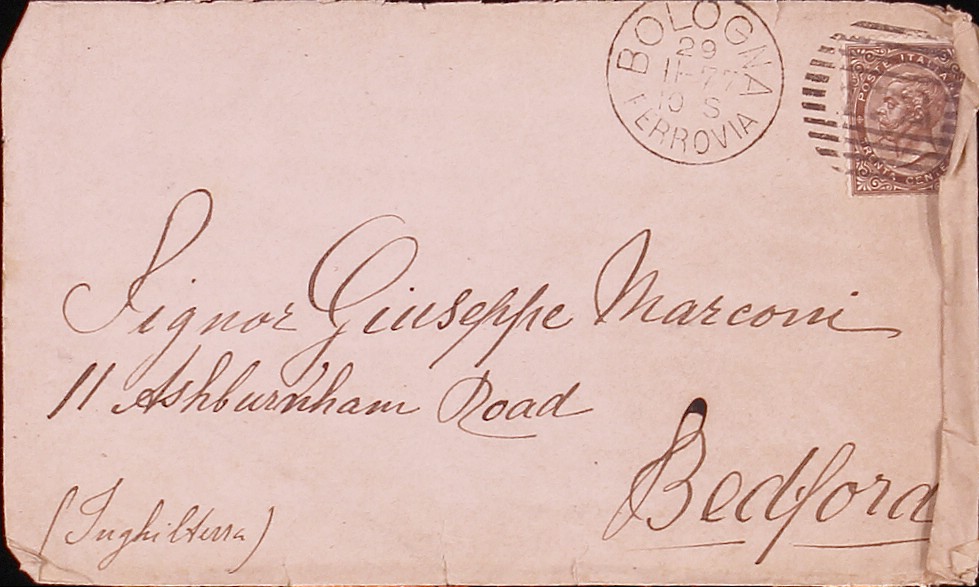 BOLOGNA
29
11-77
10 S
FERROVIA
POSTE ITALIANE
TRENTA CENTE
Signor Giuseppe Marconi
11 Ashburnham Road
Bedford
(Inghilterra)